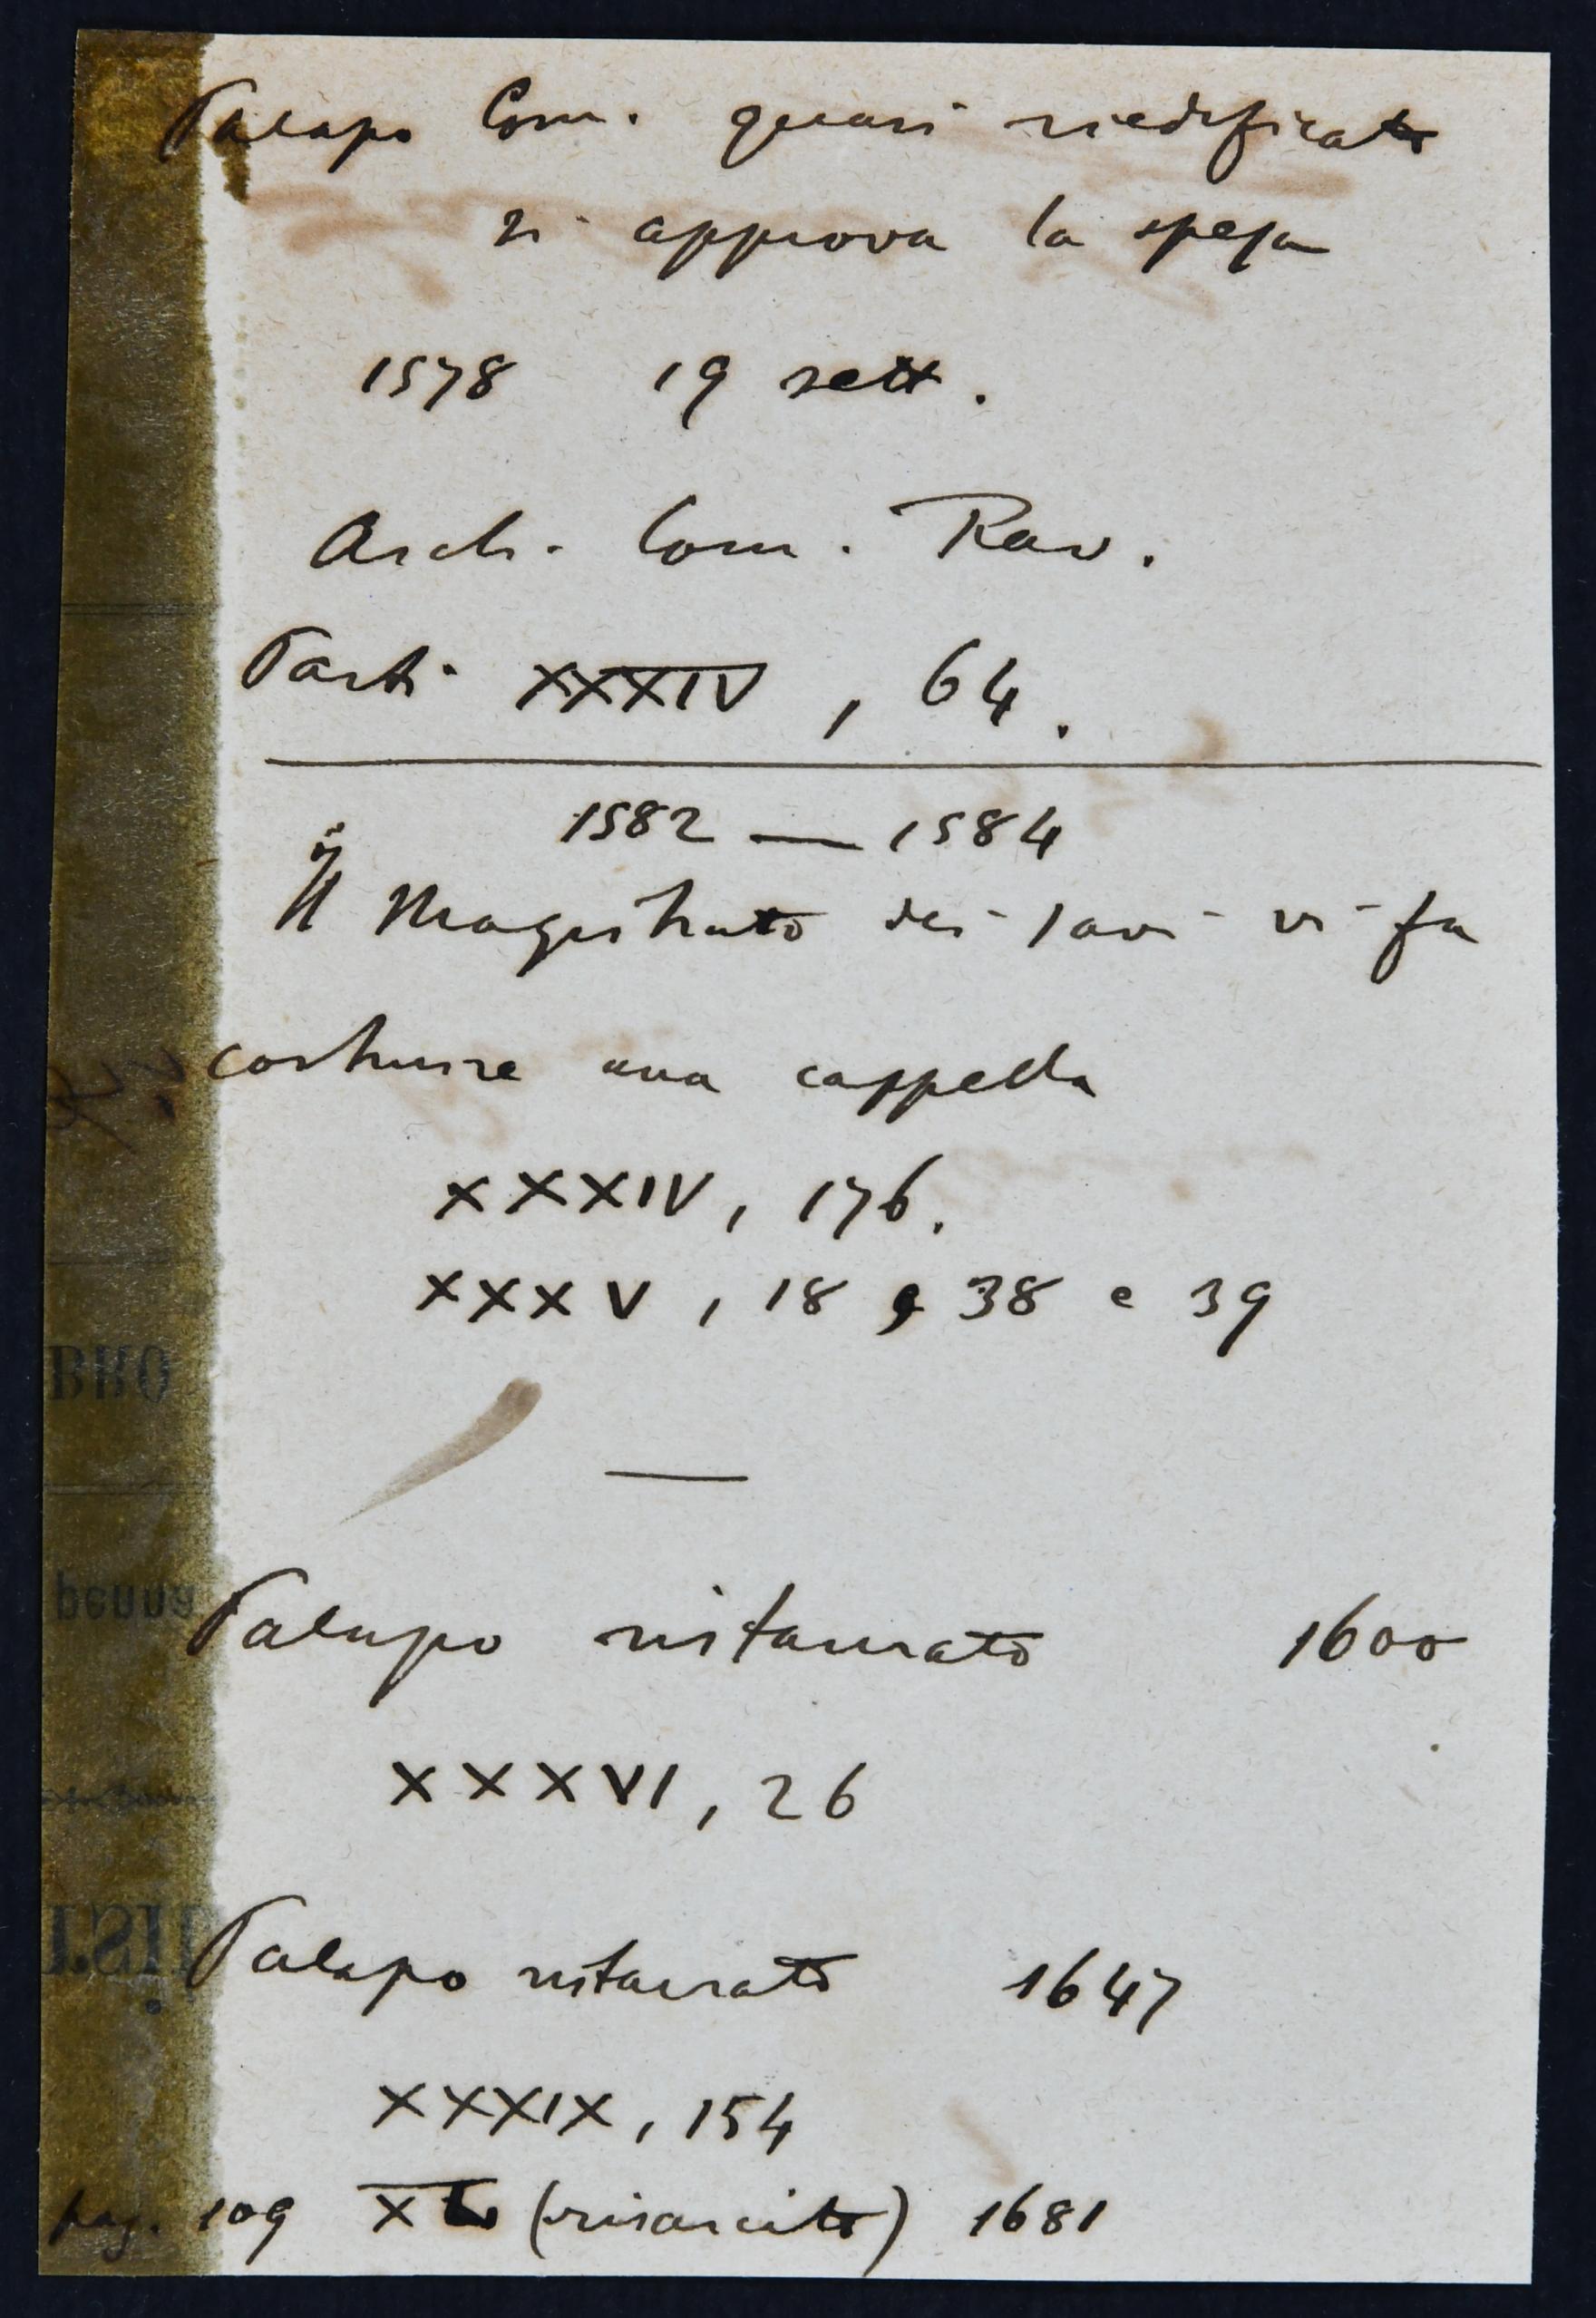 Palazzo Com. quasi riedificato
si approva la spesa
1578 19 sett.
Arch. Com. Rav.
Parti XXXIV, 64.
1582 — 1584
Il Magistrato dei Savi vi fa
costruire una cappella
XXXIV, 176.
XXXV, 18 e 38 e 39
Palazzo ristaurato 1600
XXXVI, 26
Palazzo ristaurato 1647
XXXIX, 154
pag. 109 (risarcito) 1681